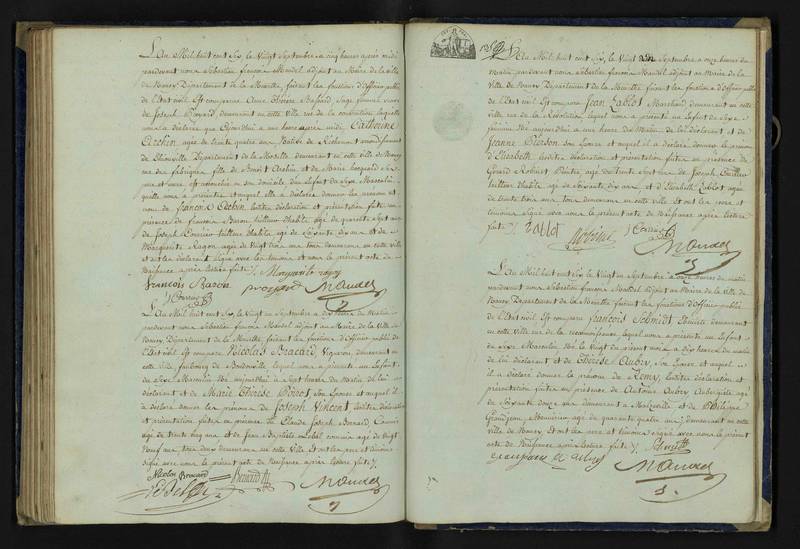 L'an Mil huit cent Six, le Vingt Septembre a cinq heures après midi
pardevant nous Sébastien françois Mandel adjoint au Maire de la Ville
de Nancy Département de la Meurthe, faisant les fonctions d'Officier public
de l'Etat civil Est comparue Anne Thérèse sage femme
de Joseph demeurant en cette Ville rue de la constitution laquelle
nous a déclaré que Cejourd'hui a une heure après midi Catherine
Erchin agée de trente quatre ans Native de
de Thionville Département de la Moselle demeurant en cette ville de Nancy
rue des fabriques, fille de Benoit Erchin et de Marie
est accouchée en son domicile d'un Enfant du Sexe Masculin
quelle nous a présenté et auquel elle a déclaré donner les prénom et
nom de françois Erchin lesdites déclaration et présentation faites en
présence de françois Baron tailleur d'habits agé de quarante Sept ans
de Joseph tailleur d'habits agé de Soixante dix ans et de
Marguerite Ragon agée de Vingt trois ans tous demeurans en cette ville
et ont les déclarant et témoins signé avec nous le présent acte de
Naissance après lecture faite ./. Marguerite ragon
François Baron Mandel
L'an Mil huit cent Six, le Vingt un Septembre a dix heures du Matin
pardevant nous Sébastien françois Mandel adjoint au Maire de la Ville de
Nancy, Département de la Meurthe, faisant les fonctions d'Officier public de
l'Etat civil Est comparu Nicolas Bracard, Vigneron, demeurant en
cette Ville, faubourg de lequel nous a présenté un Enfant
du Sexe Masculin Né aujourd'hui a Sept heures du Matin de lui
déclarant et de Marie Thérèse Poirot Son Epouse et auquel il
a déclaré donner les prénoms de Joseph Vincent lesdites déclaration
et présentation faites en présence de Claude Joseph Bernard,
agé de trente cinq ans et de Jean Baptiste Lebel commis agé de Vingt
Neuf ans, tous deux demeurans en cette Ville Et ont les père et témoins
signé avec nous le présent acte de Naissance après lecture faite ./.
Nicolas Bracard Bernard
Mandel
L'an Mil huit cent Six, le Vingt un Septembre a onze heures du
Matin pardevant nous Sébastien françois Mandel adjoint au Maire de la
Ville de Nancy Département de la Meurthe, faisant les fonctions d'Officier public
de l'Etat civil Est comparu Jean Lablot Marchand, demeurant en cette
ville rue de la Révolution lequel nous a présenté un Enfant du Sexe
féminin Né aujourd'hui a une heure du Matin de lui déclarant et de
Jeanne Son Epouse et auquel il a déclaré donner le prénom
d'Elisabeth lesdites déclaration et présentation faites en présence de
Gérard Robinet Peintre agé de trente Sept ans de Joseph
tailleur d'habits agé de Soixante dix ans, et d'Elisabeth Lablot agée
de trente trois ans tous demeurans en cette ville et ont les père et
témoins signé avec nous le présent acte de Naissance après lecture
faite ./. Lablot
Mandel
L'an Mil huit cent Six, le Vingt un Septembre a onze heures du matin
pardevant nous Sébastien françois Mandel adjoint au Maire de la Ville de
Nancy Département de la Meurthe faisant les fonctions d'Officier public
de l'Etat civil Est comparu François Schmidt Ebéniste demeurant
en cette ville rue de la reconnaissance, lequel nous a présenté un Enfant
du Sexe Masculin Né le Vingt du présent mois a dix heures du matin
de lui déclarant et de Thérèse Aubry, Son Epouse et auquel
il a déclaré donner le prénom de Remy, lesdites déclaration et
présentation faites en présence de Antoine Aubry, Aubergiste agé
de Soixante douze ans demeurant a Malzéville et de
Grandjean, Menuisier agé de quarante quatre ans, demeurant en cette
ville de Nancy Et ont les père et témoins signé avec nous le présent
acte de Naissance après lecture faite ./. Schmidt
Mandel